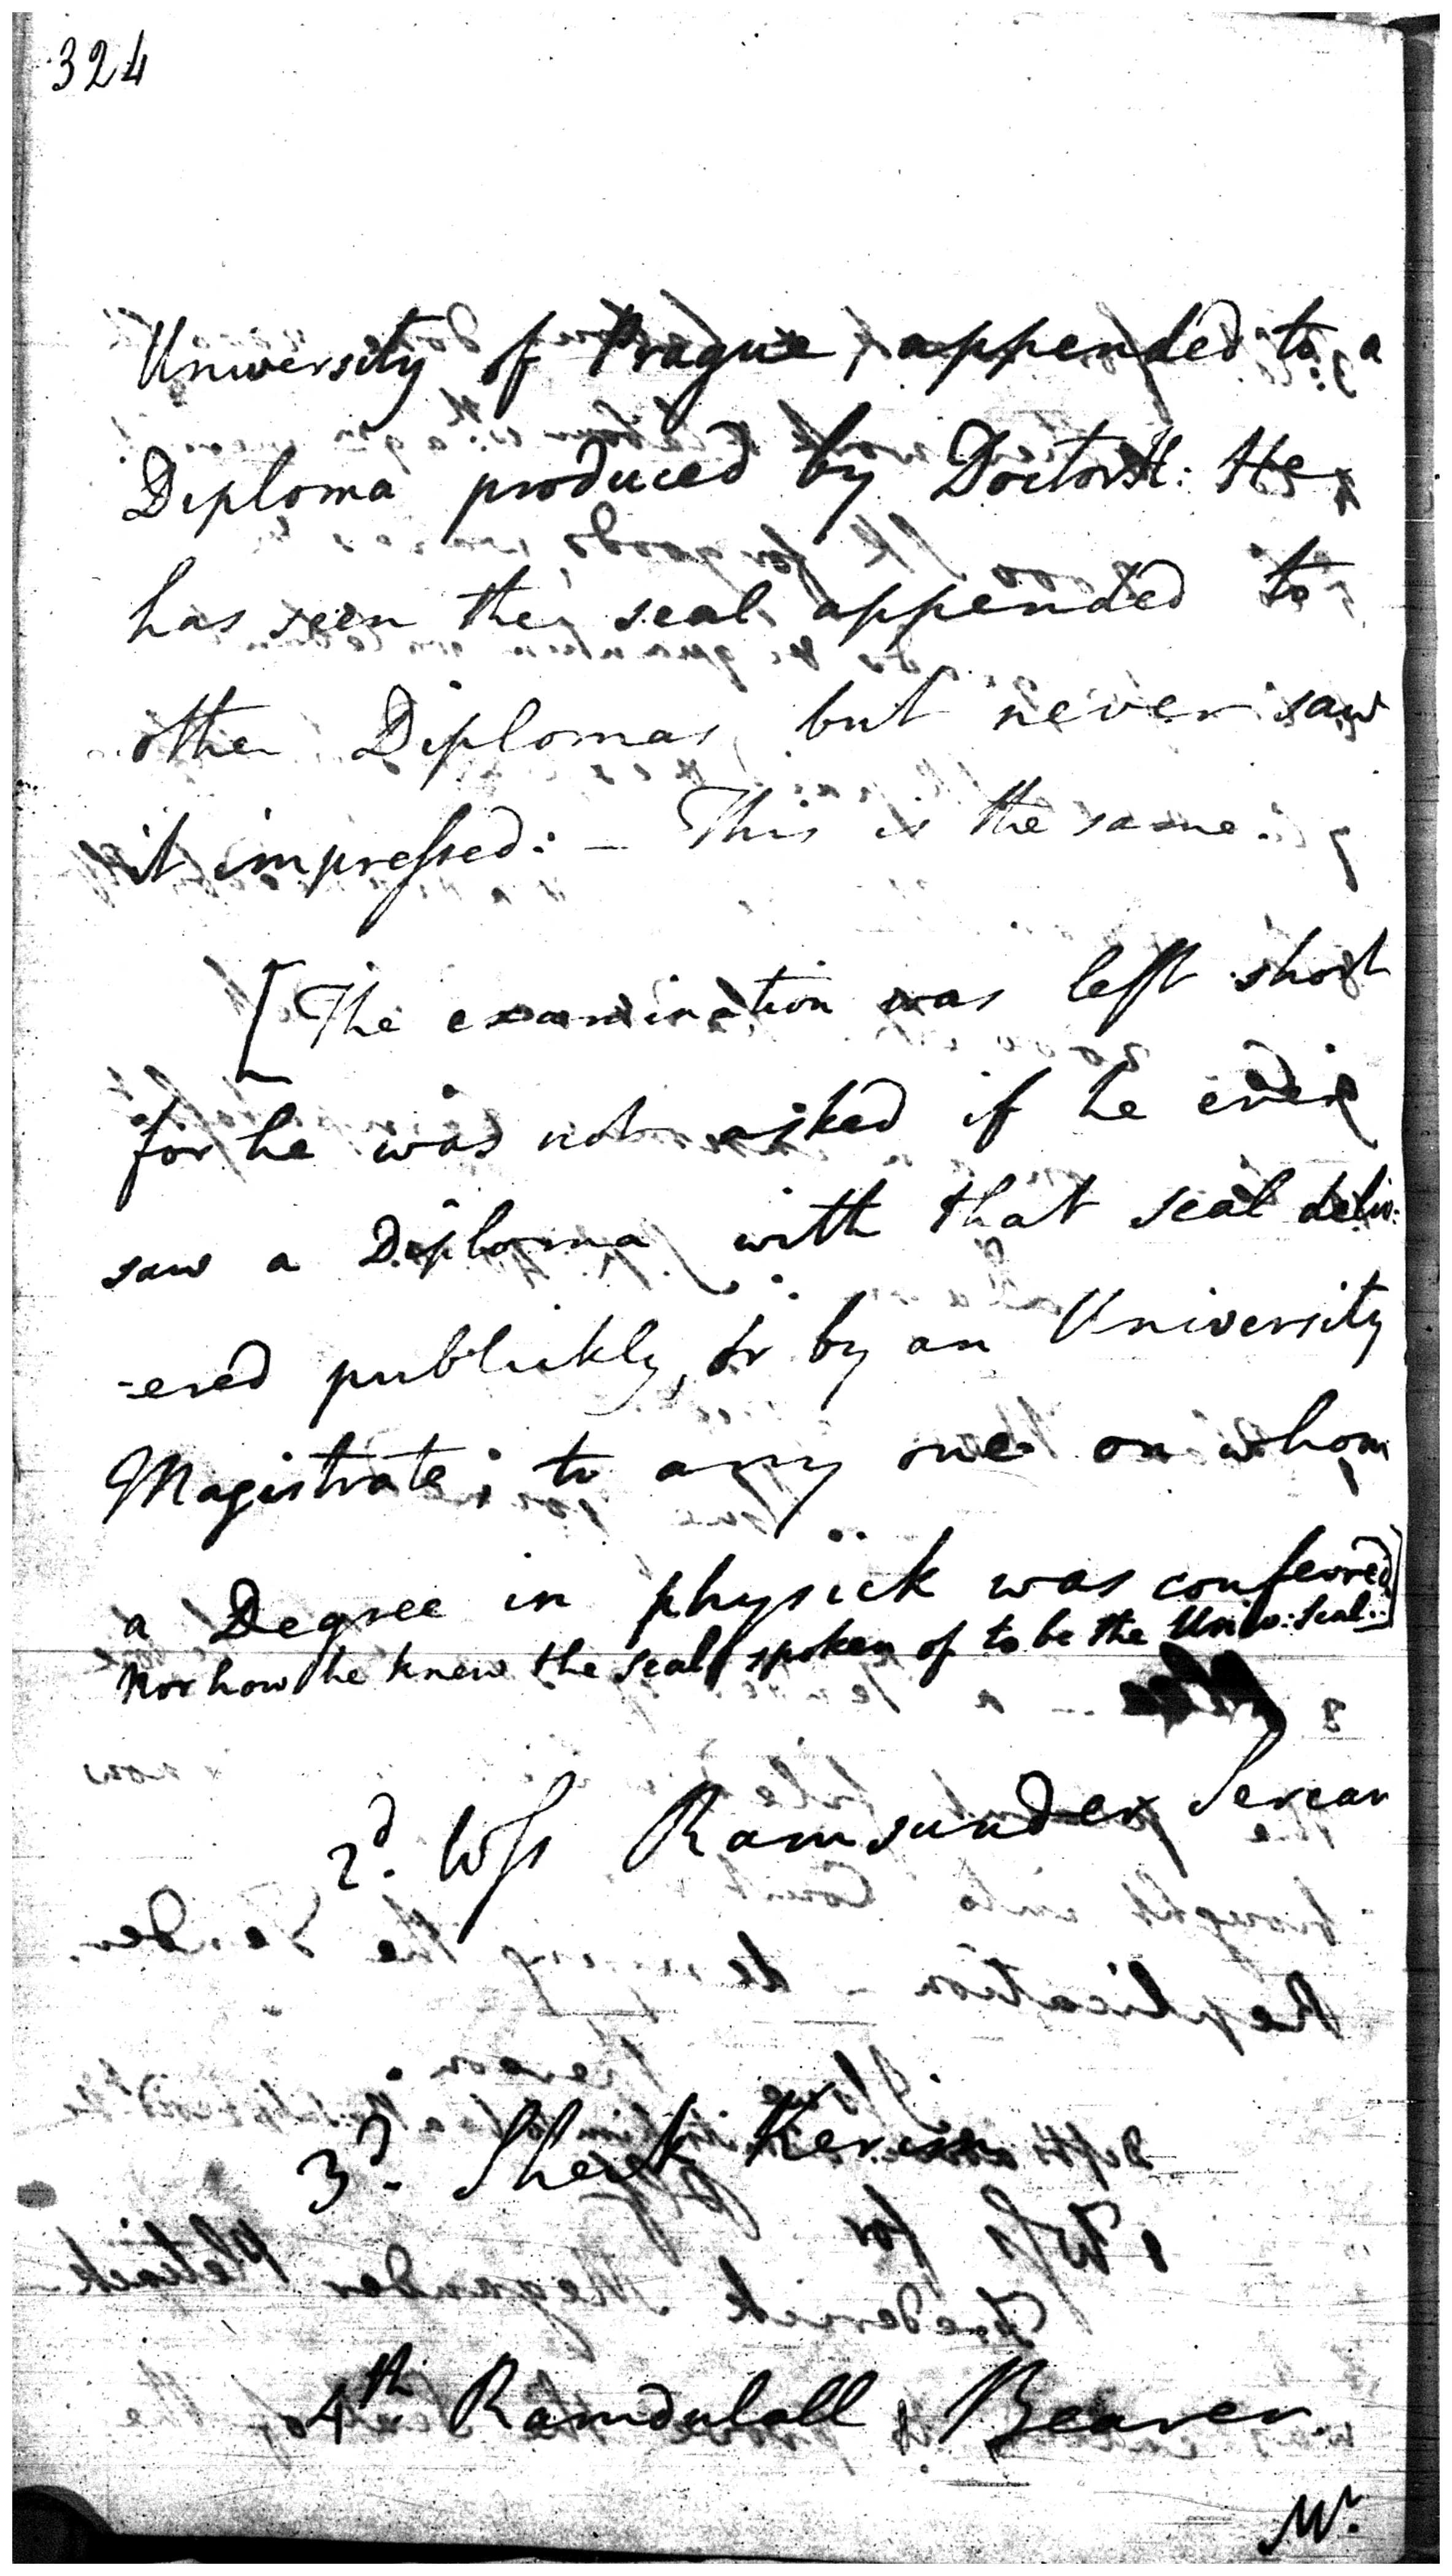 324
University of Prague, appended to a
Diploma produced by Doctor H: He
has seen the seal appended to
other Diplomas, but never saw
it impressed: — This is the same.
[The examination was left short
for he was not asked if he ever
saw a Diploma with that seal deliv:
-ered publickly, or by an University
Magistrate; to any one on whom
a Degree in physick was conferred
Nor how he knew the seal spoken of to be the Univ: Seal..]
2d. Wss Ramsunder Sercar
3d. Sheik Kerim
4th Ramdulall Bearer.
Mr.